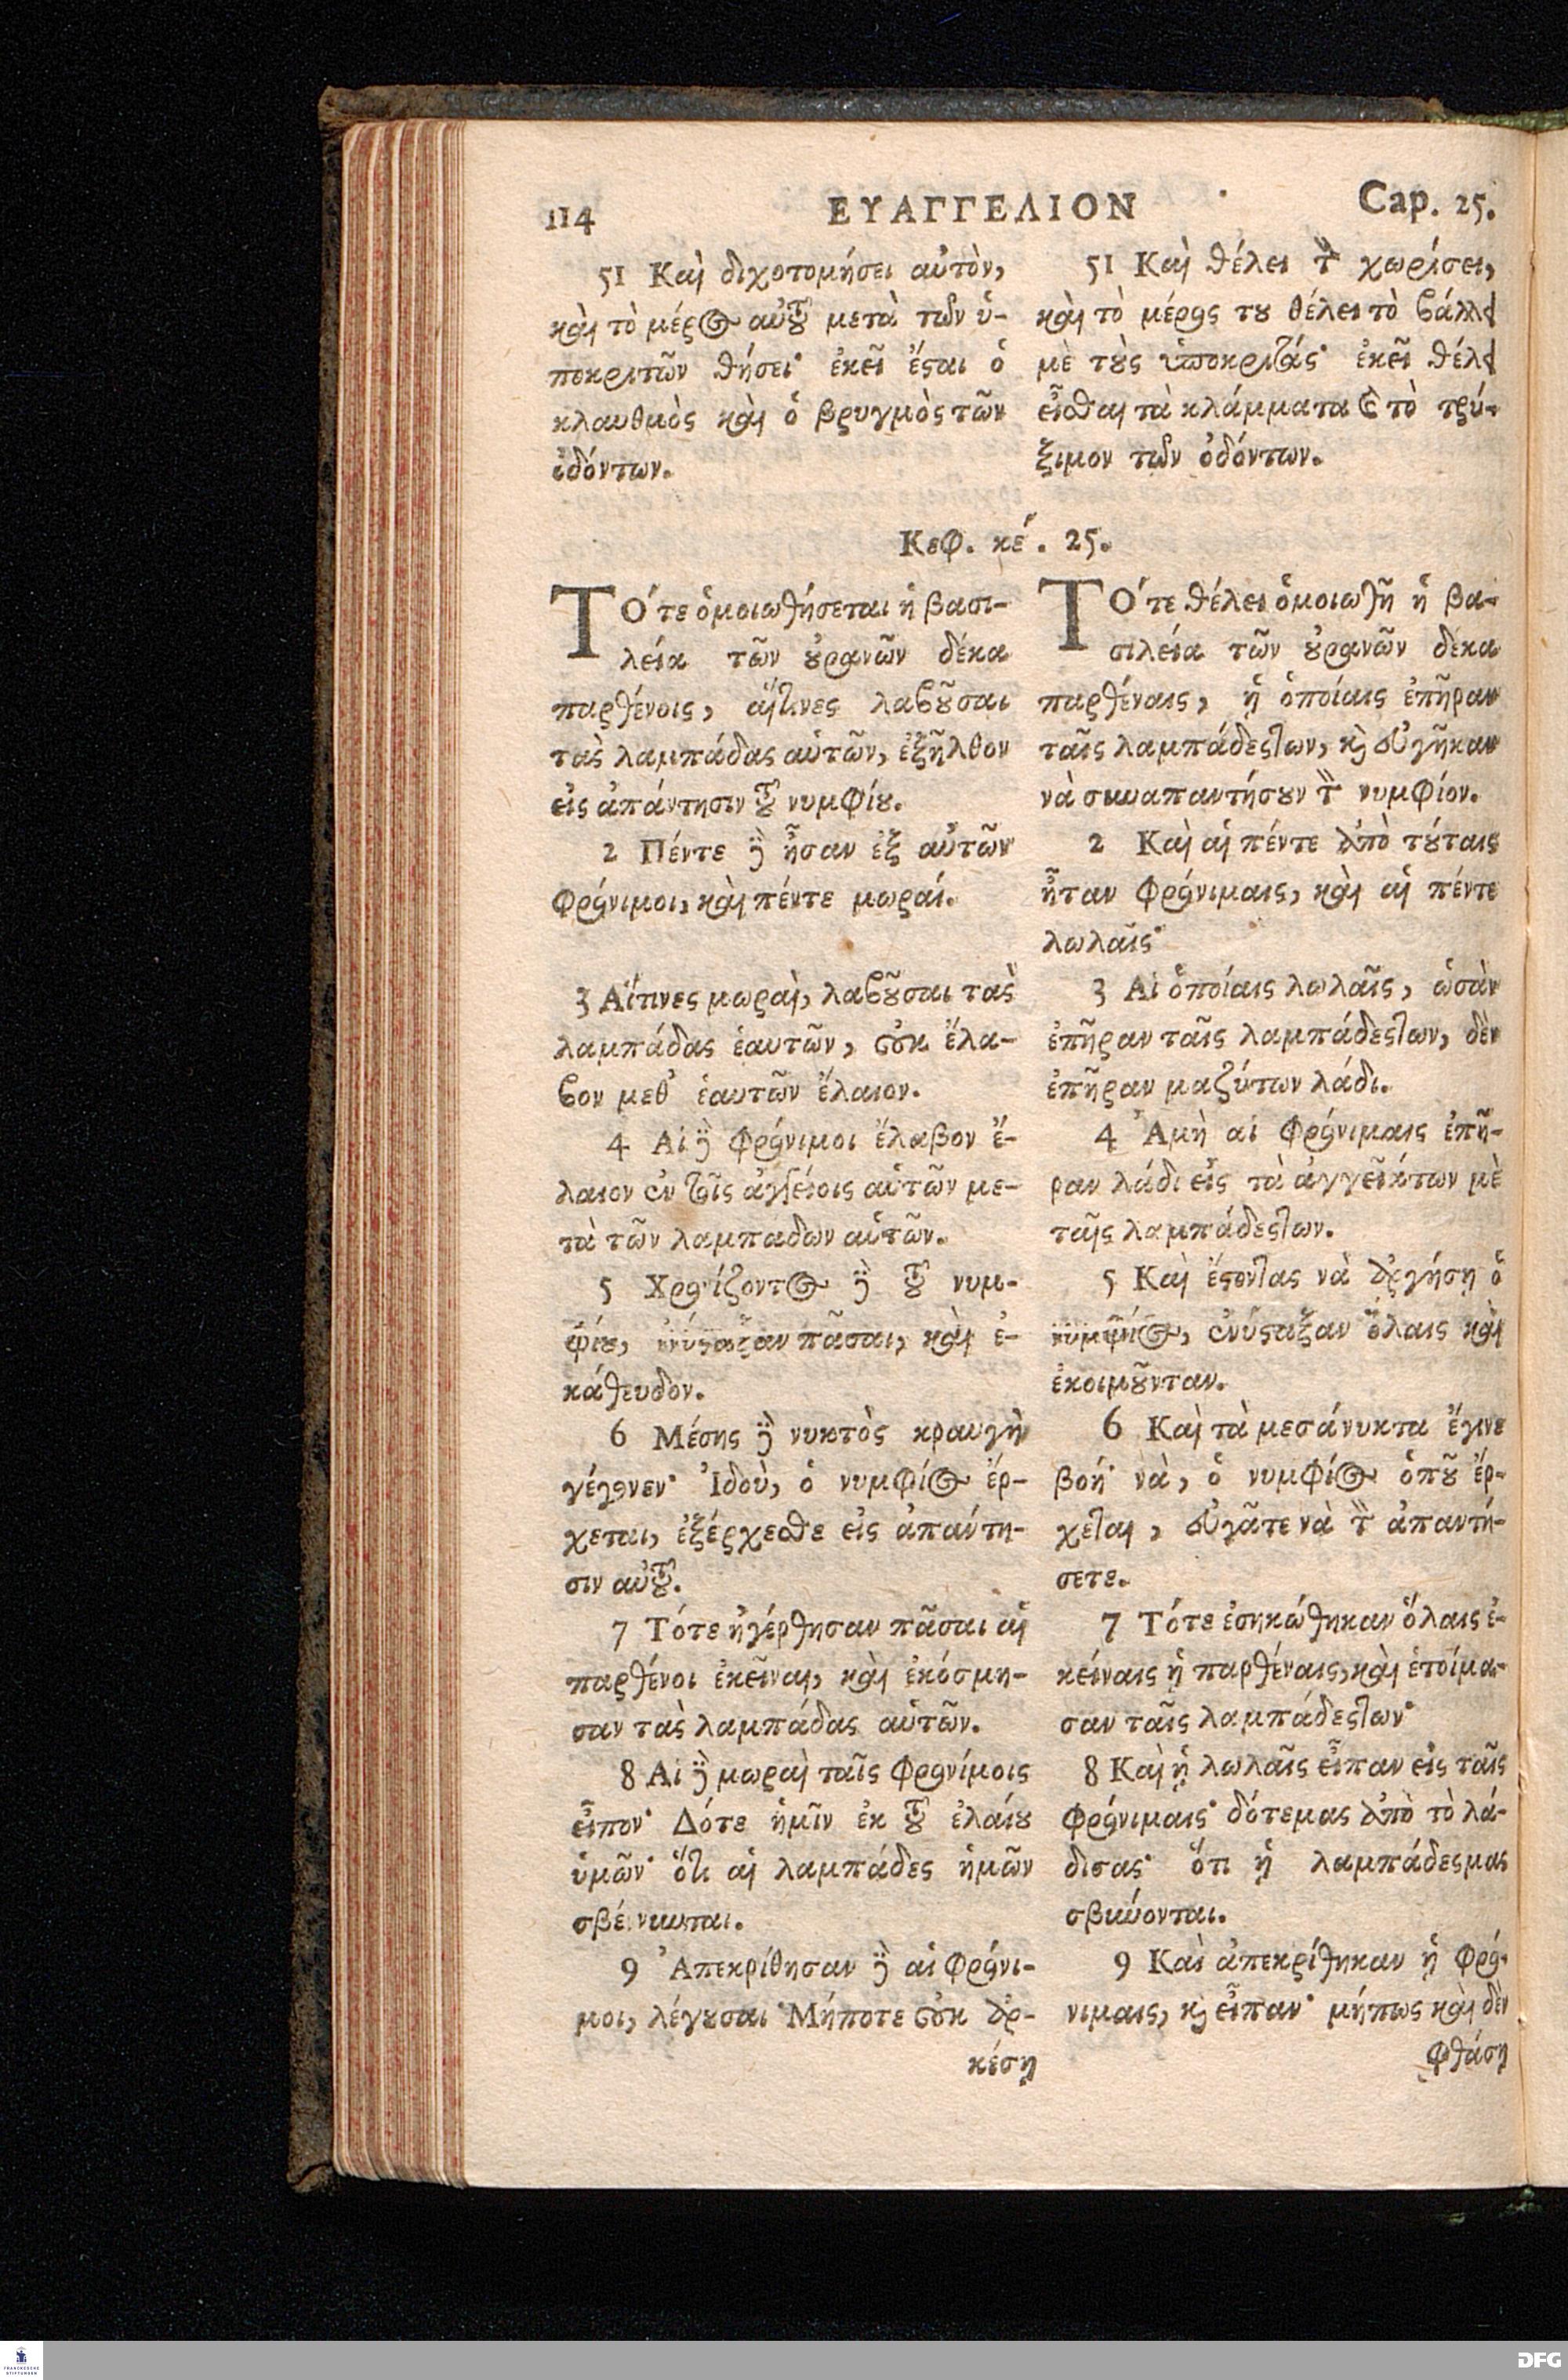 114
ΕΥΑΓΓΕΛΙΟΝ
Cap. 25.
51 Καὶ διχοτομήσει αὐτὸν,
καὶ τὸ μέρος αὐτοῦ μετὰ τῶν ὑ-
ποκριτῶν θήσει· ἐκεῖ ἔσαι ὁ
κλαυθμὸς καὶ ὁ βρυγμὸς τῶν
ὀδόντων.
Κεφ. κέ. 25.
ΤΌτε ὁμοιωθήσεται ἡ βασι-
λεία τῶν ουρανῶν δέκα
παρθένοις, αἵτινες λαβοῦσαι
τὰς λαμπάδας αὐτῶν, ἐξῆλθον
εἰς ἀπάντησιν τοῦ νυμφίου.
2 Πέντε δὲ ἦσαν ἐξ αὐτῶν
φρόνιμοι, καὶ πέντε μωραί.
3 Αἵτινες μωραὶ, λαβοῦσαι τὰς
λαμπάδας ἑαυτῶν, οὐκ ἔλα-
βον μεθ' ἑαυτῶν ἔλαιον.
4 Αἱ δὲ φρόνιμοι ἔλαβον ἔ-
λαιον ἐν τοῖς ἀγγείοις αὐτῶν με-
τὰ τῶν λαμπάδων αὐτῶν.
5 Χρονίζοντος δὲ τοῦ νυμ-
φίου, ἐνύσταξαν πᾶσαι, καὶ ἐ-
κάθευδον.
6 Μέσης δὲ νυκτὸς κραυγὴ
γέγονεν· Ἰδοὺ, ὁ νυμφίος ἔρ-
χεται, ἐξέρχεσθε εἰς ἀπάντη-
σιν αὐτοῦ.
7 Τότε ἠγέρθησαν πᾶσαι αἱ
παρθένοι ἐκεῖναι, καὶ ἐκόσμη-
σαν τὰς λαμπάδας αὐτῶν.
8 Αἱ δὲ μωραὶ ταῖς φρονίμοις
εἶπον· Δότε ἡμῖν ἐκ τοῦ ἐλαίου
ὑμῶν· ὅτι αἱ λαμπάδες ἡμῶν
σβέννυνται.
9 Ἀπεκρίθησαν δὲ αἱ φρόνι-
μοι, λέγουσαι· Μήποτε οὐκ ἀρ-
κέσῃ
51 Καὶ θέλει τὸν χωρίσει,
καὶ τὸ μέρος του θέλει τὸ βάλλει
μὲ τοὺς ὑποκριτάς· ἐκεῖ θέλει
εἶσθαι τὰ κλάμματα καὶ τὸ τρύ-
ξιμον τῶν ὀδόντων.
ΤΌτε θέλει ὁμοιωθῆ ἡ βα-
σιλεία τῶν οὐρανῶν δέκα
παρθέναις, ἡ ὁποίαις ἐπῆραν
ταῖς λαμπάδεςτων, καὶ εὐγῆκαν
νὰ συναπαντήσουν τὸν νυμφίον.
2 Καὶ αἱ πέντε ἀπὸ τούταις
ἦταν φρόνιμαις, καὶ αἱ πέντε
λωλαῖς·
3 Αἱ ὁποίαις λωλαῖς, ὡσὰν
ἐπῆραν ταῖς λαμπάδεςτων, δὲν
ἐπῆραν μαζύτων λάδι.
4 Ἀμὴ αἱ φρόνιμαις ἐπῆ-
ραν λάδι εἰς τὰ ἀγγεῖάτων μὲ
ταῖς λαμπάδεςτων.
5 Καὶ ἔστοντας νὰ ἀργήσῃ ὁ
νυμφίος, ἐνύσταξαν ὅλαις καὶ
ἐκοιμοῦνταν.
6 Καὶ τὰ μεσάνυκτα ἔγινε
βοή· νὰ, ὁ νυμφίος ὁποῦ ἔρ-
χεται, εὐγᾶτε νὰ τὸν ἀπαντή-
σετε.
7 Τότε ἐσηκώθηκαν ὅλαις ἐ-
κείναις ἡ παρθέναις, καὶ ἑτοίμα-
σαν ταῖς λαμπάδεςτων·
8 Καὶ ἡ λωλαῖς εἶπαν εἰς ταῖς
φρόνιμαις· δότεμας ἀπὸ τὸ λά-
δισας· ὅτι ἡ λαμπάδεςμας
σβύνονται.
9 Καὶ ἀπεκρίθηκαν ἡ φρό-
νιμαις, καὶ εἶπαν· μήπως καὶ δὲν
φθάσῃ
FRANCKESCHE
STIFTUNGEN
DFG